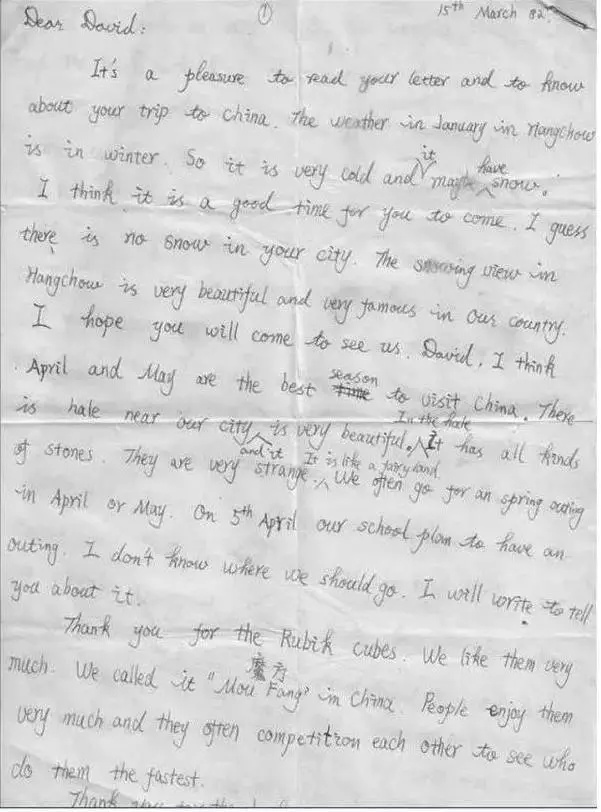 ①
15th March 82.
Dear David:
It's a pleasure to read your letter and to know
about your trip to China. The weather in January in Hangchow
is in winter. So it is very cold and it maybe have snow.
I think it is a good time for you to come. I guess
there is no snow in your city. The snowing view in
Hangchow is very beautiful and very famous in our country.
I hope you will come to see us. David, I think
April and May are the best time season to visit China. There
is hale near our city and it is very beautiful. In the hale It has all kinds
of stones. They are very strange. It is like a fairyland. We often go for an spring outing
in April or May. On 5th April our school plan to have an
outing. I don't know where we should go. I will write to tell
you about it.
Thank you for the Rubik cubes. We like them very
much. We called it "Mou Fang" 魔方 in China. People enjoy them
very much and they often competition each other to see who
do them the fastest.
Thank you for the